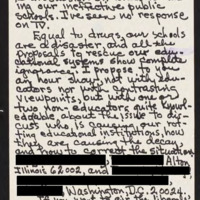 ing our destructive public
schools. I've seen no response
on TV.
Equal to drugs, our schools
are a disaster, and all the
proposals to rescue our edu-
cational systems show complete
ignorance. I propose to you
an hour show, not with edu-
cators nor with contrasting
viewpoints, but with one or
two non-educators quite knowl-
edgable about the issue to dis-
cuss who is causing our rot-
ting educational institutions, how
they are causing the decay
and how to correct the situation.
Alton,
Illinois 62002, and
Washington, D.C. 20024.
If you want to